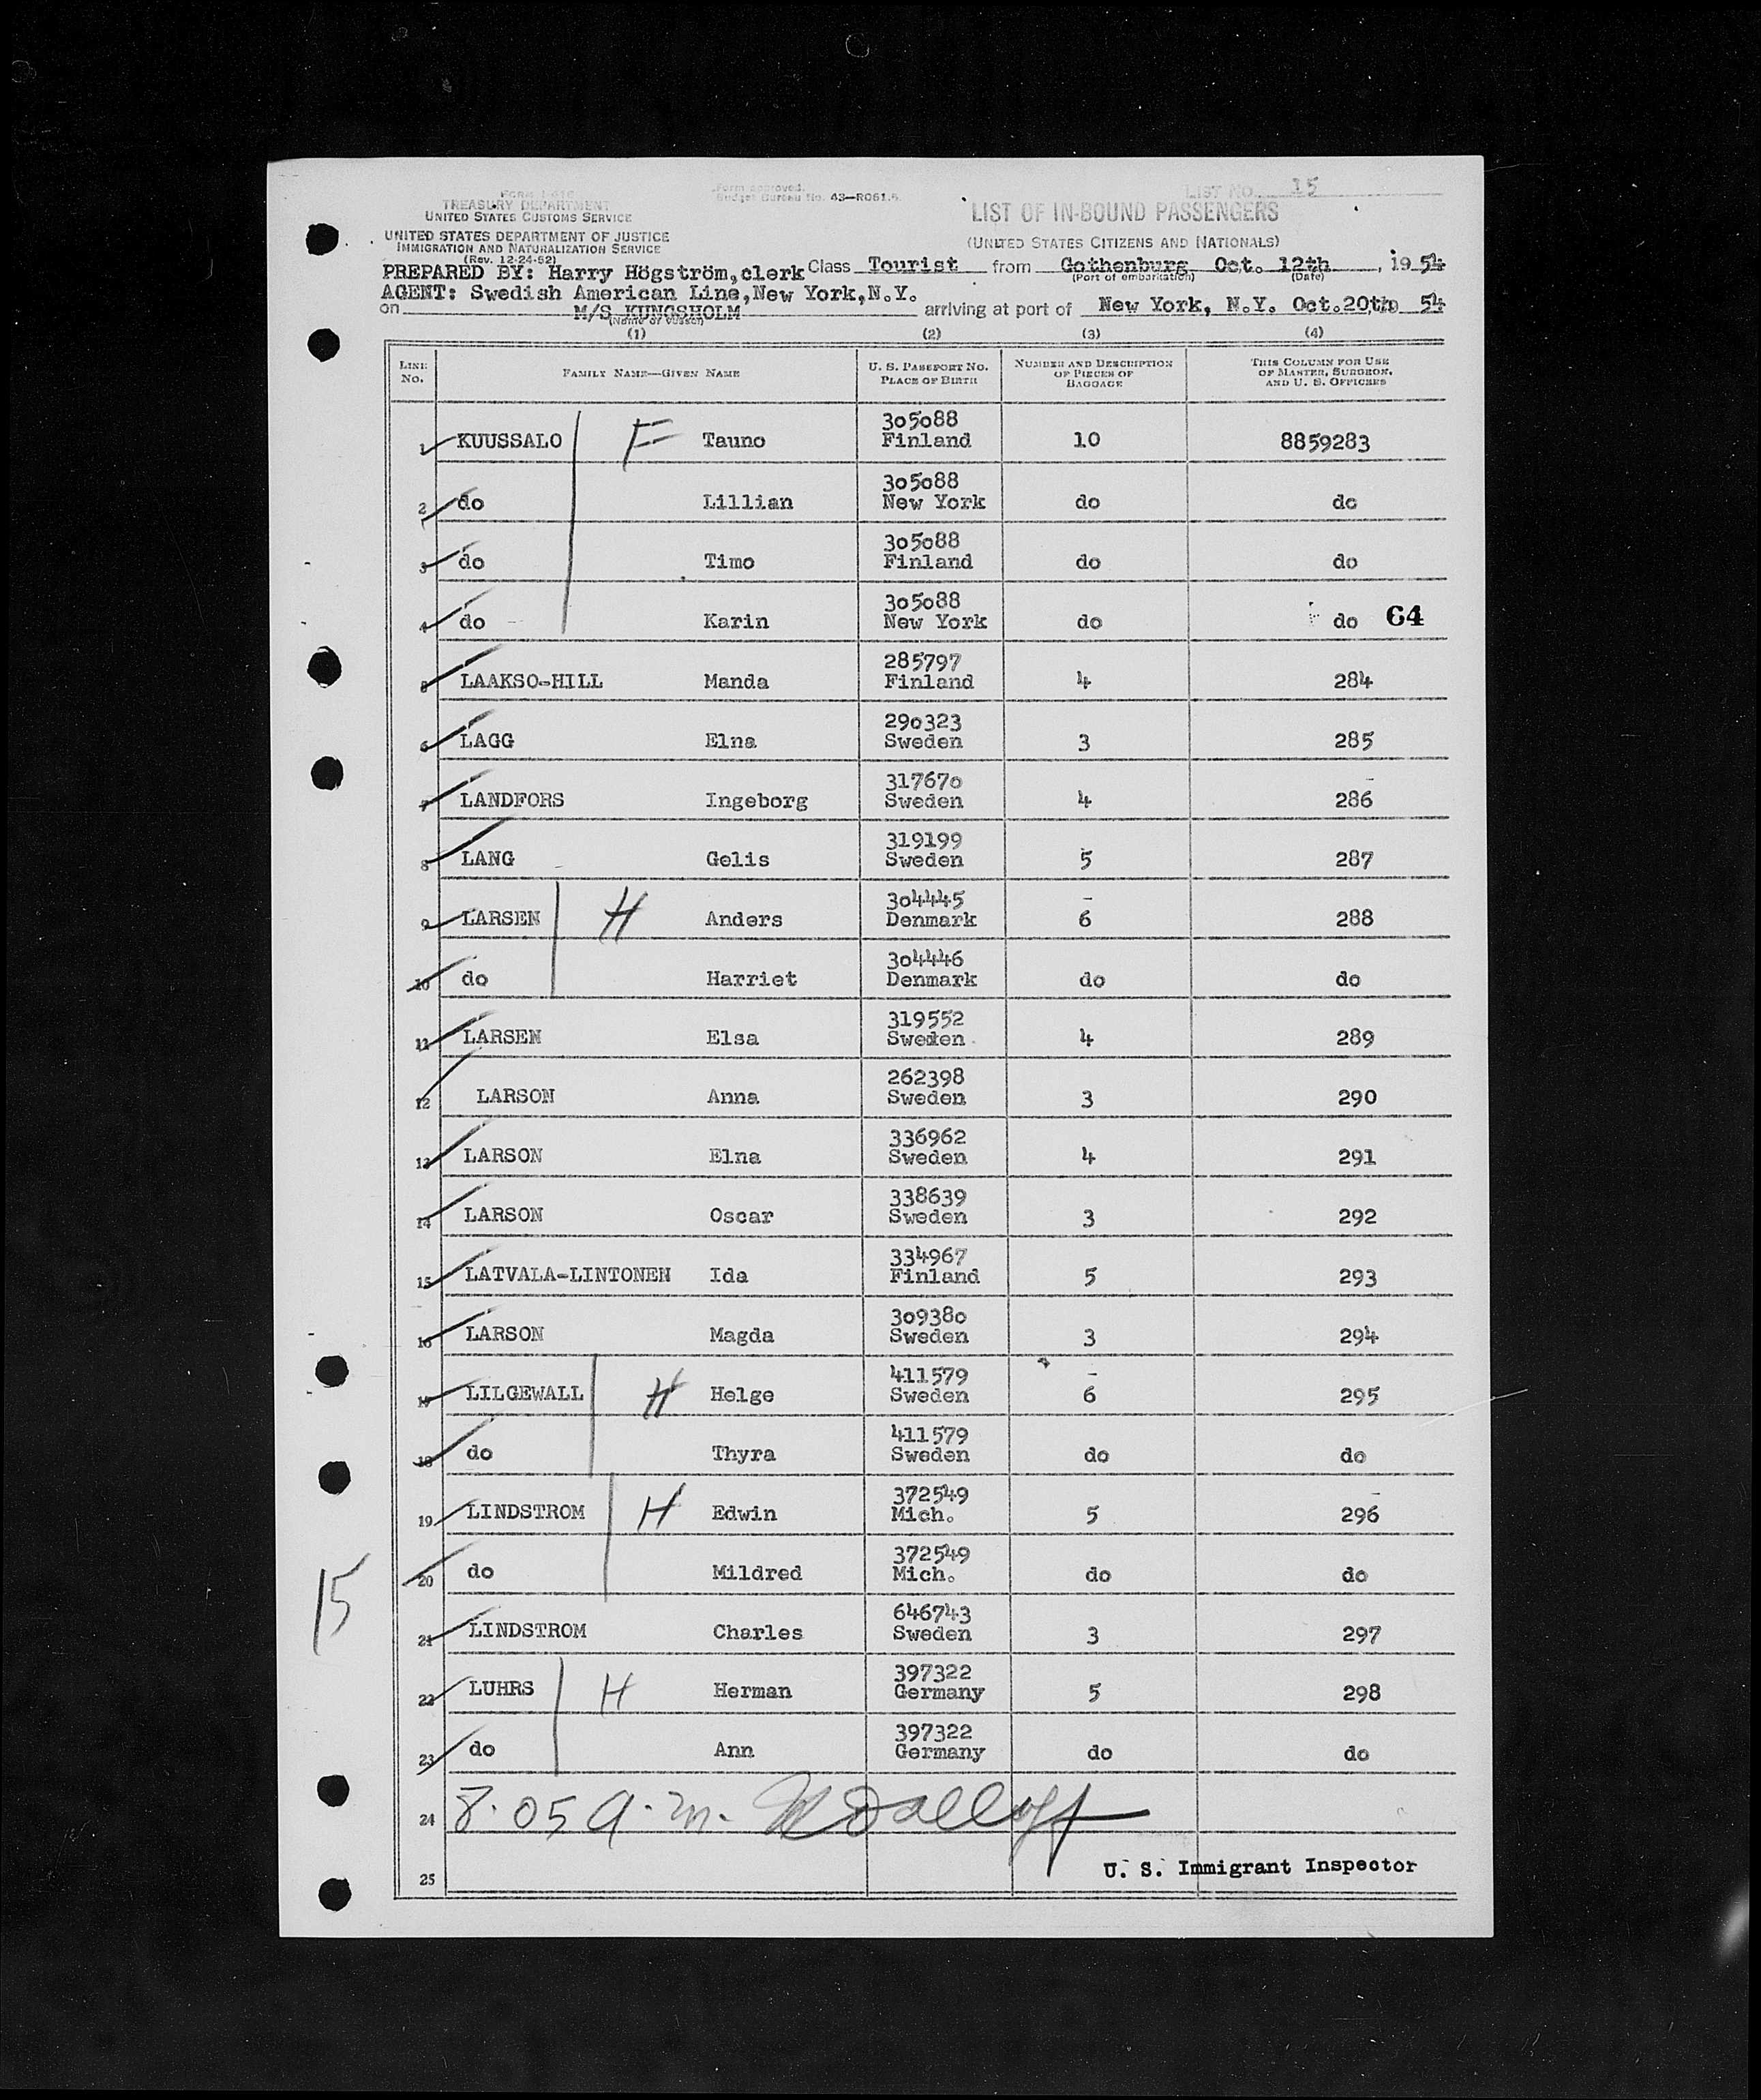 FORM I-416
TREASURY DEPARTMENT
UNITED STATES CUSTOMS SERVICE
UNITED STATES DEPARTMENT OF JUSTICE
IMMIGRATION AND NATURALIZATION SERVICE
(Rev. 12-24-52)
Form approved.
Budget Bureau No. 43-R061.5
LIST NO. 15
LIST OF IN-BOUND PASSENGERS
(UNITED STATES CITIZENS AND NATIONALS)
PREPARED BY: Harry Högström, clerk Class Tourist from Gothenburg Oct. 12th, 1954
(Port of embarkation) (Date)
AGENT: Swedish American Line, New York, N.Y.
on M/S KUNGSHOLM arriving at port of New York, N.Y. Oct. 20th 54
(Name of vessel)
(1) (2) (3) (4)
LINE No. FAMILY NAME—GIVEN NAME U. S. PASSPORT NO. PLACE OF BIRTH NUMBER AND DESCRIPTION OF PIECES OF BAGGAGE THIS COLUMN FOR USE OF MASTER, SURGEON, AND U. S. OFFICERS
1 KUUSSALO F Tauno 305088 Finland 10 8859283
2 do Lillian 305088 New York do do
3 do Timo 305088 Finland do do
4 do Karin 305088 New York do do 64
5 LAAKSO-HILL Manda 285797 Finland 4 284
6 LAGG Elna 290323 Sweden 3 285
7 LANDFORS Ingeborg 317670 Sweden 4 286
8 LANG Gelis 319199 Sweden 5 287
9 LARSEN H Anders 304445 Denmark 6 288
10 do Harriet 304446 Denmark do do
11 LARSEN Elsa 319552 Sweden 4 289
12 LARSON Anna 262398 Sweden 3 290
13 LARSON Elna 336962 Sweden 4 291
14 LARSON Oscar 338639 Sweden 3 292
15 LATVALA-LINTONEN Ida 334967 Finland 5 293
16 LARSON Magda 309380 Sweden 3 294
17 LILGEWALL H Helge 411579 Sweden 6 295
18 do Thyra 411579 Sweden do do
19 LINDSTROM H Edwin 372549 Mich. 5 296
20 do Mildred 372549 Mich. do do
15
21 LINDSTROM Charles 646743 Sweden 3 297
22 LUHRS H Herman 397322 Germany 5 298
23 do Ann 397322 Germany do do
24 8.05 a.m.
25 U. S. Immigrant Inspector